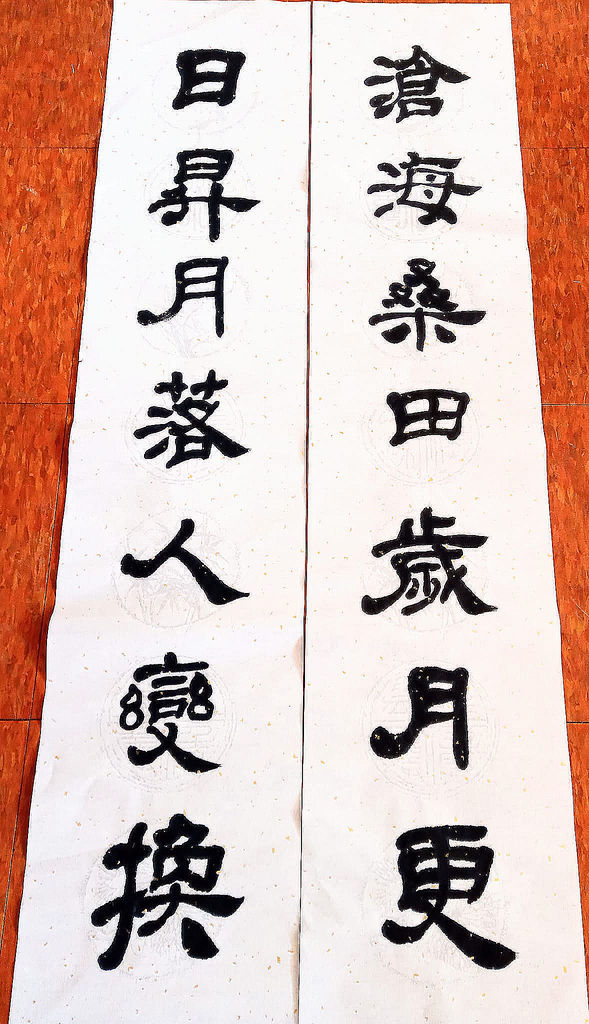 滄海桑田歲月更
日昇月落人變換